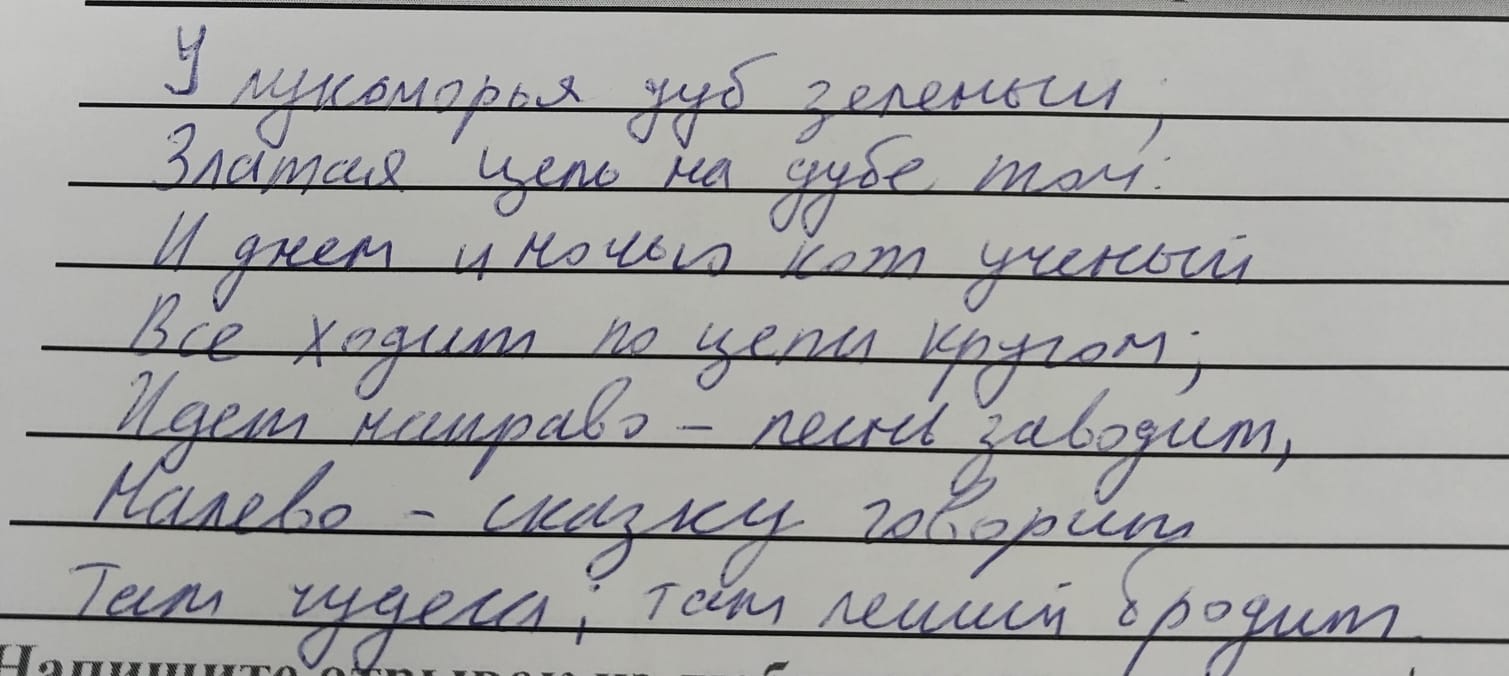 У лукоморья дуб зеленый;
Златая цепь на дубе том:
И днем и ночью кот ученый
Все ходит по цепи кругом;
Идет направо - песнь заводит,
Налево - сказку говорит
Там чудеса; там леший бродит
Напишите отрывок из